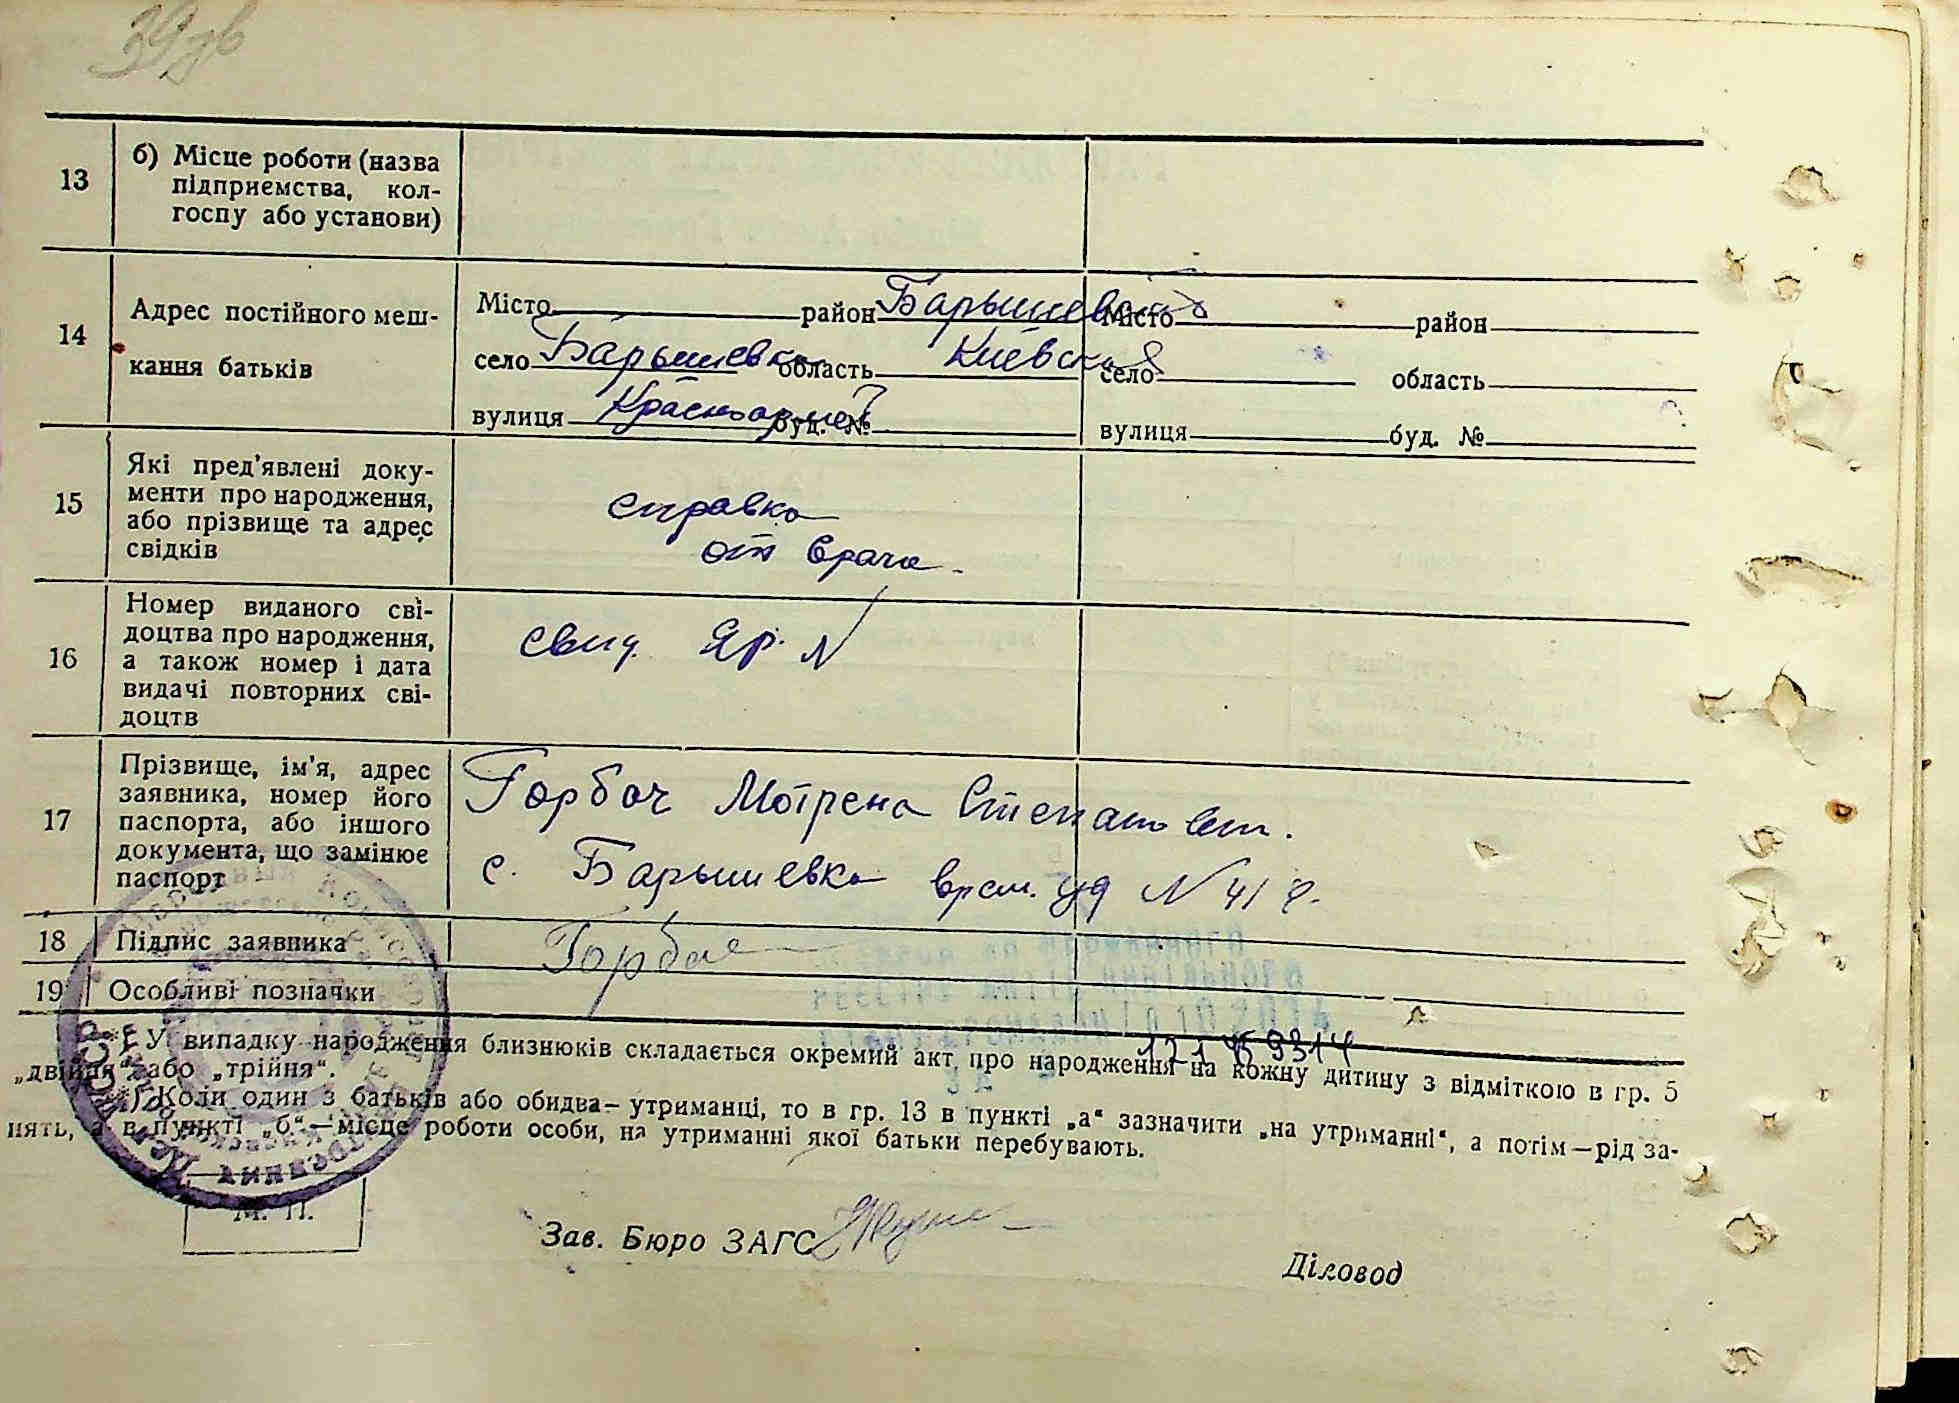 39зв
13
б) Місце роботи (назва
підприємства, кол-
госпу або установи)
14
Адрес постійного меш-
кання батьків
Місто район Барышевский
село Барышевка область Киевская
вулиця Красноармей буд. №
Місто район
село область
вулиця буд. №
15
Які пред'явлені доку-
менти про народження,
або прізвище та адрес
свідків
справка
от врача.
16
Номер виданого сві-
доцтва про народження,
а також номер і дата
видачі повторних сві-
доцтв
свид. ЯР. N
17
Прізвище, ім'я, адрес
заявника, номер його
паспорта, або іншого
документа, що замінює
паспорт
Горбач Мотрена Степановн.
с. Барышевка врем. уд N 41 г.
18 Підпис заявника
Горбач
19 Особливі позначки
12189314
*) У випадку народження близнюків складається окремий акт про народження на кожну дитину з відміткою в гр. 5
„двійня“ або „трійня“.
**) Коли один з батьків або обидва—утриманці, то в гр. 13 в пункті „а“ зазначити „на утриманні“, а потім—рід за-
нять, а в пункті „б“—місце роботи особи, на утриманні якої батьки перебувають.
М. П.
Зав. Бюро ЗАГС
Діловод